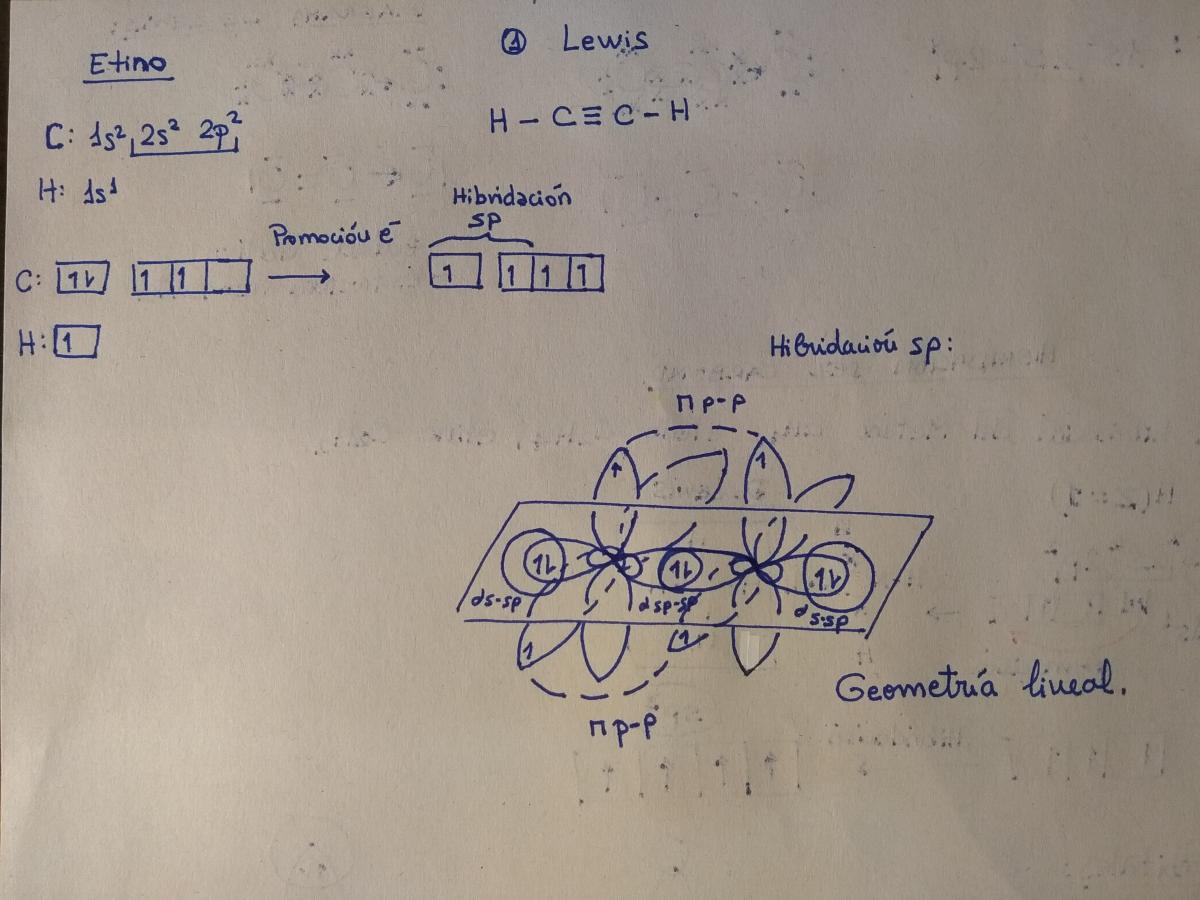 Etino
① Lewis
H – C ≡ C – H
C: 1s² 2s² 2p²
H: 1s¹
Hibridación
sp
Promoción e⁻
C: 1↓ 1 1 → 1 1 1 1
H: 1
Hibridación sp:
π p-p
1 1
1↓ 1↓ 1↓
σs-sp σsp-sp σs-sp
1 1
π p-p
Geometría lineal.